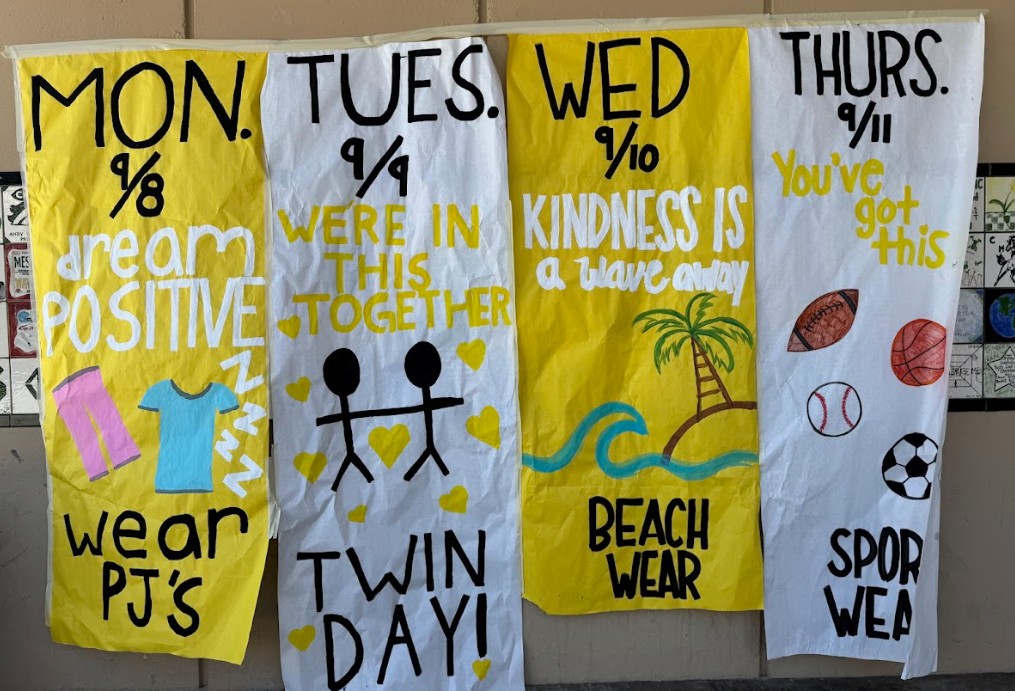 MON.
9/8
dream
POSITIVE
ZZZZZ
wear
PJ'S
TUES.
9/9
WERE IN
THIS
TOGETHER
TWIN
DAY!
WED
9/10
KINDNESS IS
a wave away
BEACH
WEAR
THURS.
9/11
You've
got
this
SPOR
WEA